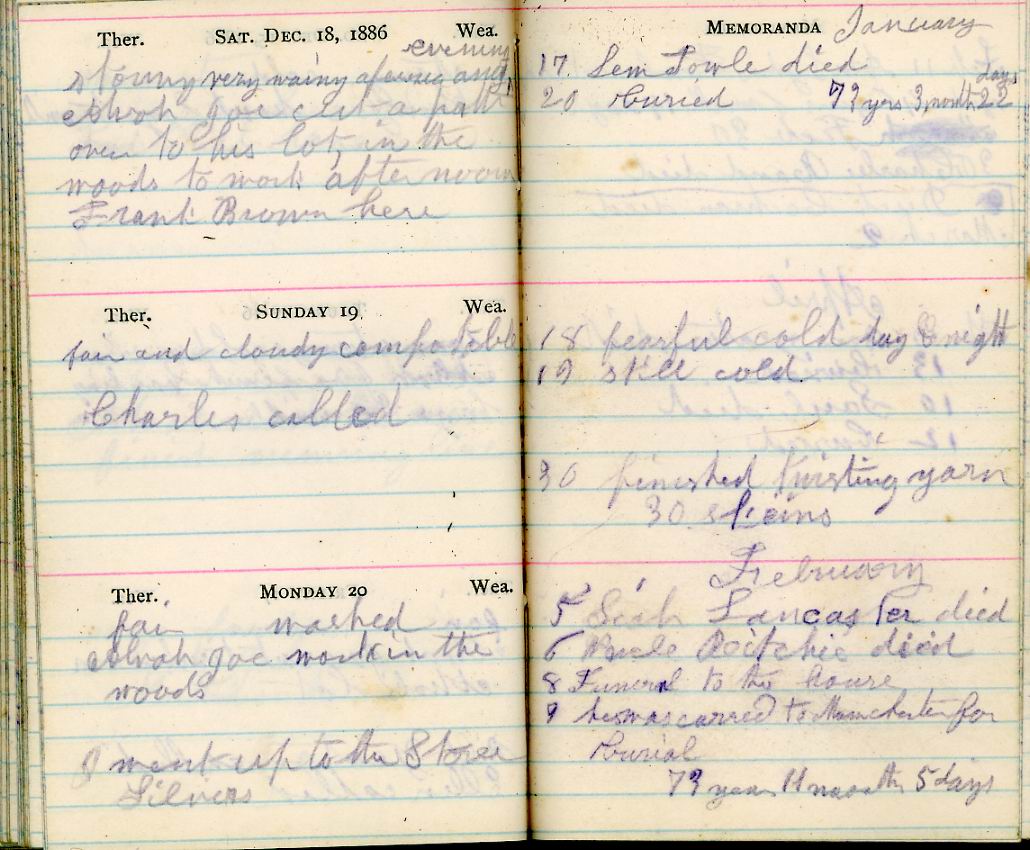 Ther. SAT. DEC. 18, 1886 Wea.
evening
stormy very rainy and
Alvah Joe cut a path
over to his lot, in the
woods to work afternoon
Frank Brown here
Ther. SUNDAY 19 Wea.
fair and cloudy comfortable
Charles called
Ther. MONDAY 20 Wea.
fair washed
Alvah Joe work in the
woods
I went up to the Store
Silvers
MEMORANDA January
17. Lem Towle died
days
20 Buried 79 yrs 3 month 22
18 fearful cold day & night
19 still cold.
30 finished twisting yarn
30 skeins
February
5 Lancaster died
6 Uncle Ritchie died
8 Funeral to the house
9 he was carred to Manchester for
Burial
79 years 11 months 5 days